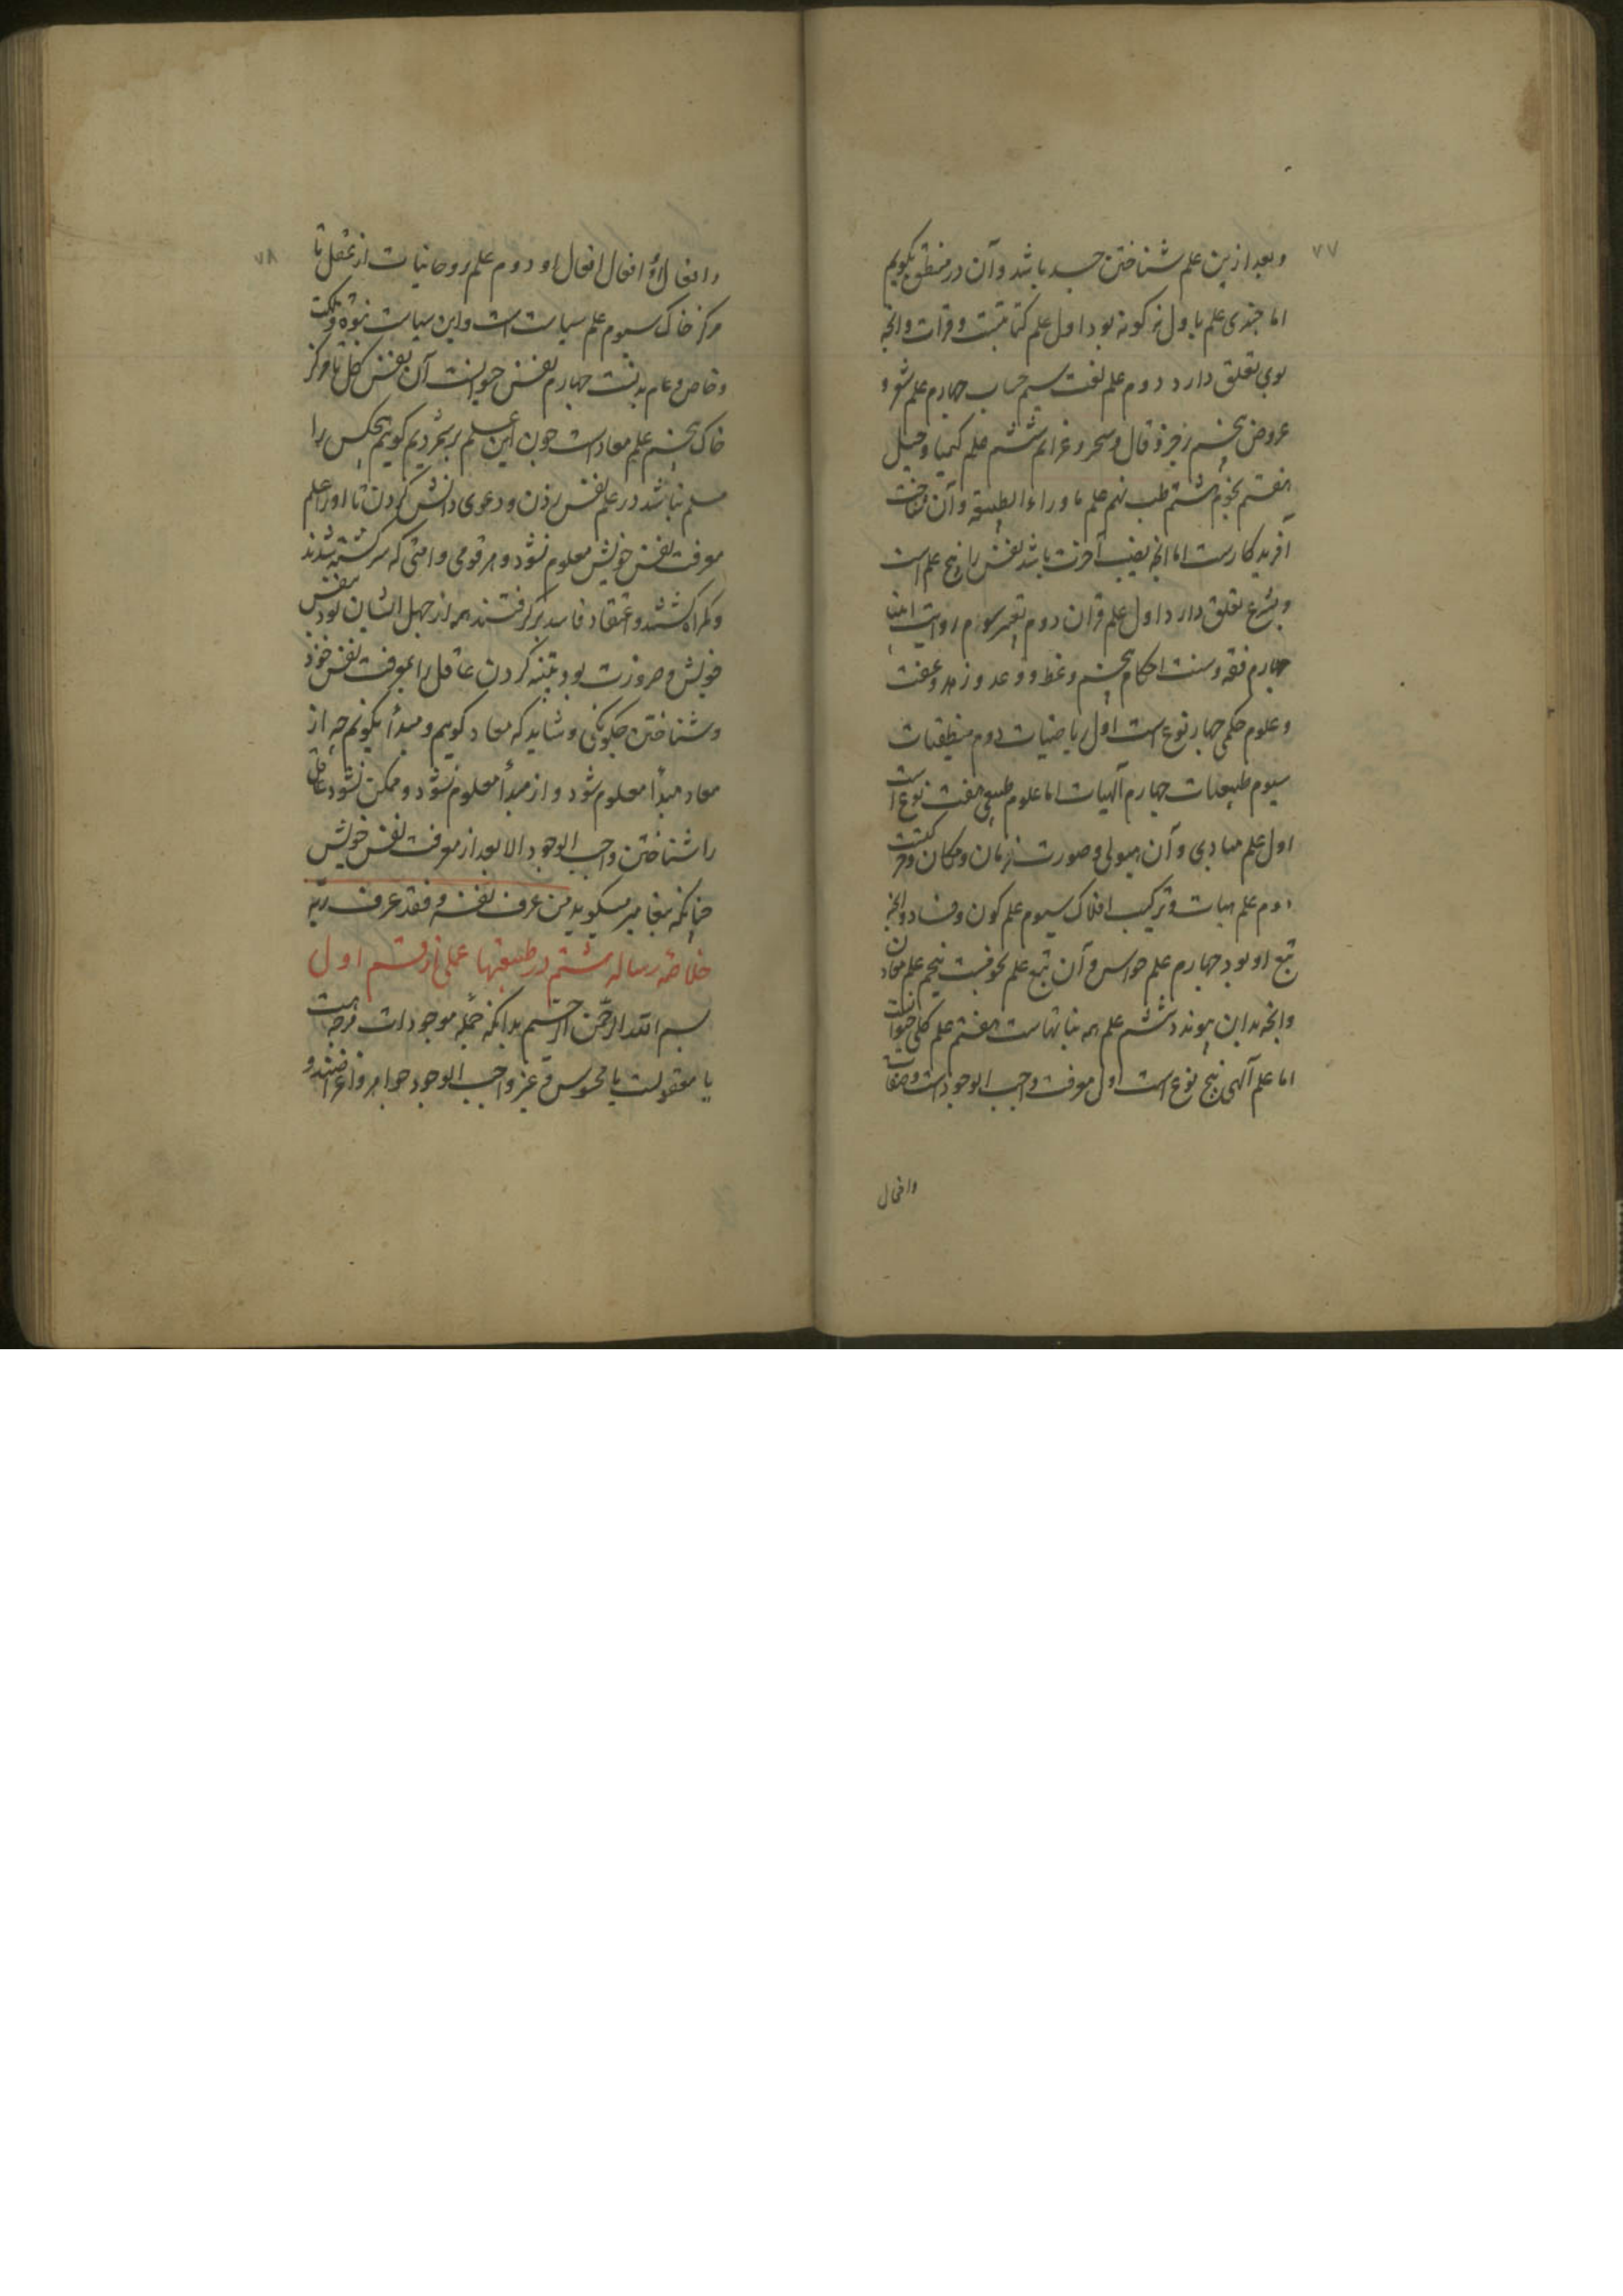 ۷۷
و بعد ازین علم شناختن جسد باشد و آن در منطق بکویم
اما جزوی علم باول نه کونه بود اول علم کتابتست و قرات و انچه
بوی تعلق دارد دوم علم لغت سیم حساب چهارم علم شعر و
عروض پنجم زجر و فال و سحر و عزایم ششم علم کیمیا و حیل
هفتم نجوم هشتم طب نهم علم ماوراء الطبیعة و آن شناخت
آفریدکارست اما انچه نصیب آخرت باشد نفس را پنج علم است
و بشرع تعلق دارد اول علم قران دوم تفسیر سوم روایت
چهارم فقه و سنت احکام پنجم وعظ و وعد و زهد و عفت
و علوم حکمی چهار نوع است اول ریاضیات دوم منطقیات
سیوم طبیعیات چهارم آلهیات اما علوم طبیعی هفت نوع است
اول علم مبادی و آن هیولی و صورت و زمان و مکان و حرکتست
دوم علم هیات و ترکیب افلاک سیوم علم کون و فساد و انچه
تبع او بود چهارم علم حواس و آن تبع علم نجومست پنجم علم معادن
و انچه بدان پیوندد ششم علم همه نباتهاست هفتم علم کلی حیوانست
اما علم آلهی پنج نوع است اول معرفت واجب الوجود است و صفات
وافعال
۷۸
و افعال او و افعال افعال او دوم علم روحانیات از عقل تا
مرکز خاک سیوم علم سیاست است و این سیاست نبوة و مملکت
و خاص و عام بدنست چهارم نفس حیوانست آن نفس کل تا مرکز
خاک پنجم علم معادست چون این علم برشمردیم کوییم هیچکس را
مسلم نباشد در علم نفس زدن و دعوی دانش کردن تا اورا علم
معرفت نفس خویش معلوم نشود و هر قومی و امتی که سرکشته شدند
و کمراه کشتند و اعتقاد فاسد برکرفتند همه از جهل ایشان بود بنفس
خویش و ضرورت بود تنبیه کردن عاقل را بمعرفت نفس خود
و شناختن چکونکی و شاید که معاد کوییم و مبدأ نکوییم چه از
معاد مبدأ معلوم شود و از مبدأ معلوم نشود و ممکن نشود عاقل
را شناختن واجب الوجود الا بعد از معرفت نفس خویش
چنانکه پیغامبر میکوید من عرف نفسه فقد عرف ربه
خلاصه رساله هشتم در طبیعتها عملی از قسم اول
بسم الله الرحمن الرحیم بدانکه جمله موجودات هرچه هست
یا معقولست یا محسوس و غیر واجب الوجود جواهر و اعراضند و